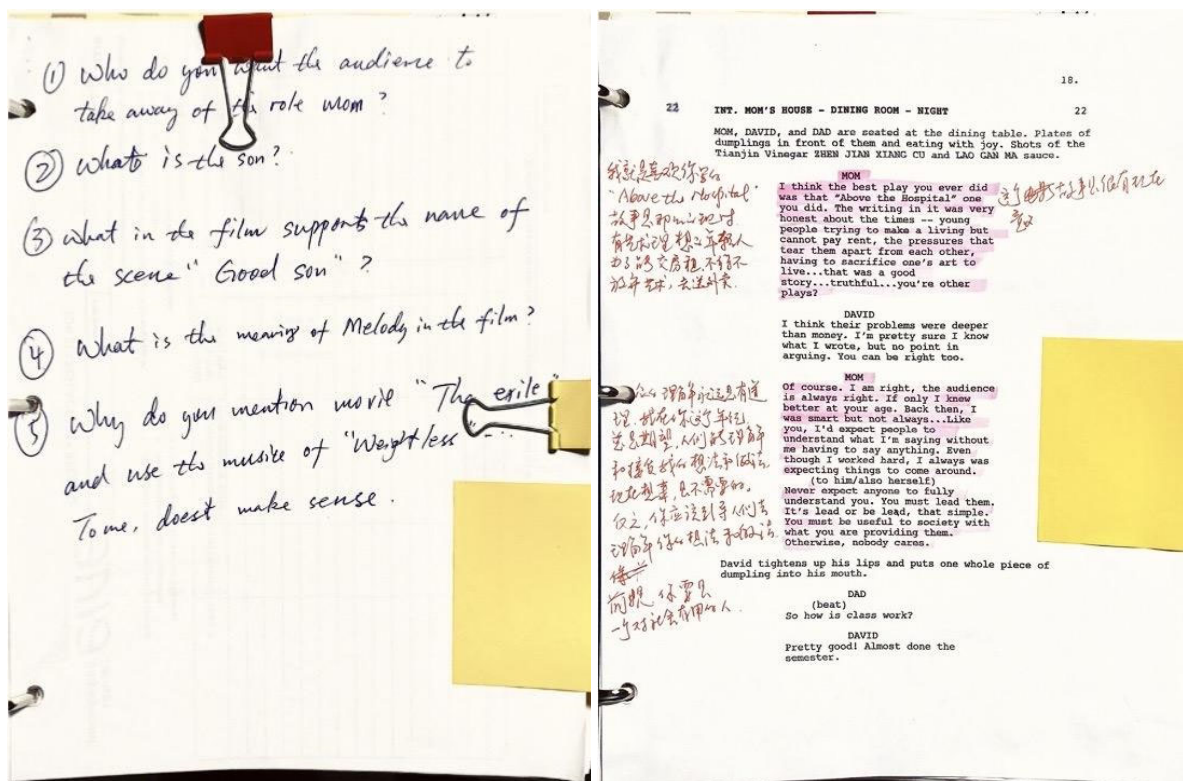 ① Who do you want the audience to
take away of the role mom?
② What is the son?
③ What in the film supports the name of
the scene "Good son"?
④ What is the meaning of Melody in the film?
⑤ Why do you mention movie "The exile"
and use the musice of "Weightless"...
To me, doest make sense.
18.
22 INT. MOM'S HOUSE - DINING ROOM - NIGHT 22
MOM, DAVID, and DAD are seated at the dining table. Plates of
dumplings in front of them and eating with joy. Shots of the
Tianjin Vinegar ZHEN JIAN XIANG CU and LAO GAN MA sauce.
我就是喜欢你写的
"Above the Hospital"
有艺术理想的年轻人
为了的交房租,不得不
放弃艺术,去送外卖.
MOM
I think the best play you ever did
was that "Above the Hospital" one
you did. The writing in it was very
honest about the times -- young
people trying to make a living but
cannot pay rent, the pressures that
tear them apart from each other,
having to sacrifice one's art to
live...that was a good
story...truthful...you're other
plays?
很有现在
DAVID
I think their problems were deeper
than money. I'm pretty sure I know
what I wrote, but no point in
arguing. You can be right too.
理解永远是有道
理.我在你这个年纪
总是期望,人们能理解
和接受我的想法和做法.
现在想来,是不需要的.
反之,你应该引导人们去
理解你的想法和做法.
前提,你要是
一个对社会有用的人.
MOM
Of course. I am right, the audience
is always right. If only I knew
better at your age. Back then, I
was smart but not always...Like
you, I'd expect people to
understand what I'm saying without
me having to say anything. Even
though I worked hard, I always was
expecting things to come around.
(to him/also herself)
Never expect anyone to fully
understand you. You must lead them.
It's lead or be lead, that simple.
You must be useful to society with
what you are providing them.
Otherwise, nobody cares.
David tightens up his lips and puts one whole piece of
dumpling into his mouth.
DAD
(beat)
So how is class work?
DAVID
Pretty good! Almost done the
semester.